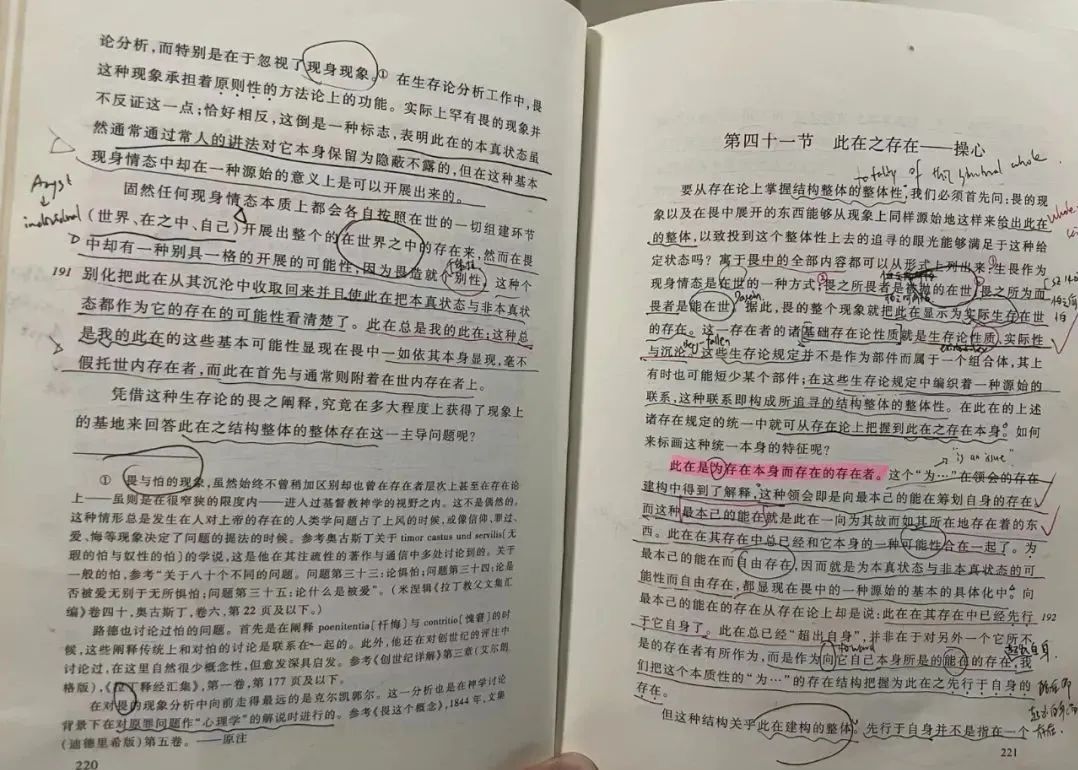 论分析，而特别是在于忽视了现身现象。① 在生存论分析工作中，畏
这种现象承担着原则性的方法论上的功能。实际上罕有畏的现象并
不反证这一点；恰好相反，这倒是一种标志，表明此在的本真状态虽
然通常通过常人的讲法对它本身保留为隐蔽不露的，但在这种基本
现身情态中却在一种源始的意义上是可以开展出来的。
Angst
individual
固然任何现身情态本质上都会各自按照在世的一切组建环节
（世界、在之中、自己）开展出整个的在世界之中的存在来，然而在畏
中却有一种别具一格的开展的可能性，因为畏造就个别性。这种个
191 别化把此在从其沉沦中收取回来并且使此在把本真状态与非本真状
态都作为它的存在的可能性看清楚了。此在总是我的此在；这种总
是我的此在的这些基本可能性显现在畏中一如依其本身显现，毫不
假托世内存在者，而此在首先与通常则附着在世内存在者上。
凭借这种生存论的畏之阐释，究竟在多大程度上获得了现象上
的基地来回答此在之结构整体的整体存在这一主导问题呢？
① 畏与怕的现象，虽然始终不曾稍加区别却也曾在存在者层次上甚至在存在论
上——虽则是在很窄狭的限度内——进入过基督教神学的视野之内。这不是偶然的。
这种情形总是发生在人对上帝的存在的人类学问题占了上风的时候，或像信仰、罪过、
爱、悔等现象决定了问题的提法的时候。参考奥古斯丁关于 timor castus und servilis[无
瑕的怕与奴性的怕]的学说，这是他在其注疏性的著作与通信中多处讨论到的。关于
一般的怕，参考“关于八十个不同的问题。问题第三十三：论惧怕；问题第三十四：论是
否被爱无别于无所惧怕；问题第三十五：论什么是被爱”。（米涅辑《拉丁教父文集汇
编》卷四十，奥古斯丁，卷六，第 22 页及以下。）
路德也讨论过怕的问题。首先是在阐释 poenitentia[忏悔]与 contritio[愧窘]的时
候，这些阐释传统上和对怕的讨论是联系在一起的。此外，他还在对创世纪的评注中
讨论过，在这里自然很少概念性，但愈发深具启发。参考《创世纪详解》第三章（艾尔朗
格版），《拉丁释经汇集》，第一卷，第 177 页及以下。
在对畏的现象分析中向前走得最远的是克尔凯郭尔。这一分析也是在神学讨论
背景下在对原罪问题作“心理学”的解说时进行的。参考《畏这个概念》，1844 年，文集
（迪德里希版）第五卷。——原注
220
第四十一节 此在之存在——操心
totally of this structural whole.
要从存在论上掌握结构整体的整体性，我们必须首先问：畏的现
象以及在畏中展开的东西能够从现象上同样源始地这样来给出此在
的整体，以致投到这个整体性上去的追寻的眼光能够满足于这种给
定状态吗？寓于畏中的全部内容都可以从形式上列出来：生畏作为
现身情态是在世的一种方式；畏之所畏者是被抛的在世；畏之所为而
畏者是能在世。据此，畏的整个现象就把此在显示为实际生存在世
的存在。这一存在者的诸基础存在论性质就是生存论性质、实际性
与沉沦。这些生存论规定并不是作为部件而属于一个组合体，其上
有时也可能短少某个部件；在这些生存论规定中编织着一种源始的
联系，这种联系即构成所追寻的结构整体的整体性。在此在的上述
诸存在规定的统一中就可从存在论上把握到此在之存在本身。如何
来标画这种统一本身的特征呢？
"is an issue"
此在是为存在本身而存在的存在者。这个“为…”在领会的存在
建构中得到了解释，这种领会即是向最本己的能在筹划自身的存在，
而这种最本己的能在就是此在一向为其故而如其所在地存在着的东
西。此在在其存在中总已经和它本身的一种可能性合在一起了。为
最本己的能在而自由存在，因而就是为本真状态与非本真状态的可
能性而自由存在，都显现在畏中的一种源始的基本的具体化中。向
最本己的能在的存在从存在论上却是说：此在在其存在中已经先行 192
于它自身了。此在总已经“超出自身”，并非在于对另外一个它所不
是的存在者有所作为，而是作为向它自己本身所是的能在的存在，我
toward
们把这个本质性的“为…”的存在结构把握为此在之先行于自身的
存在。
但这种结构关乎此在建构的整体。先行于自身并不是指在一个
221